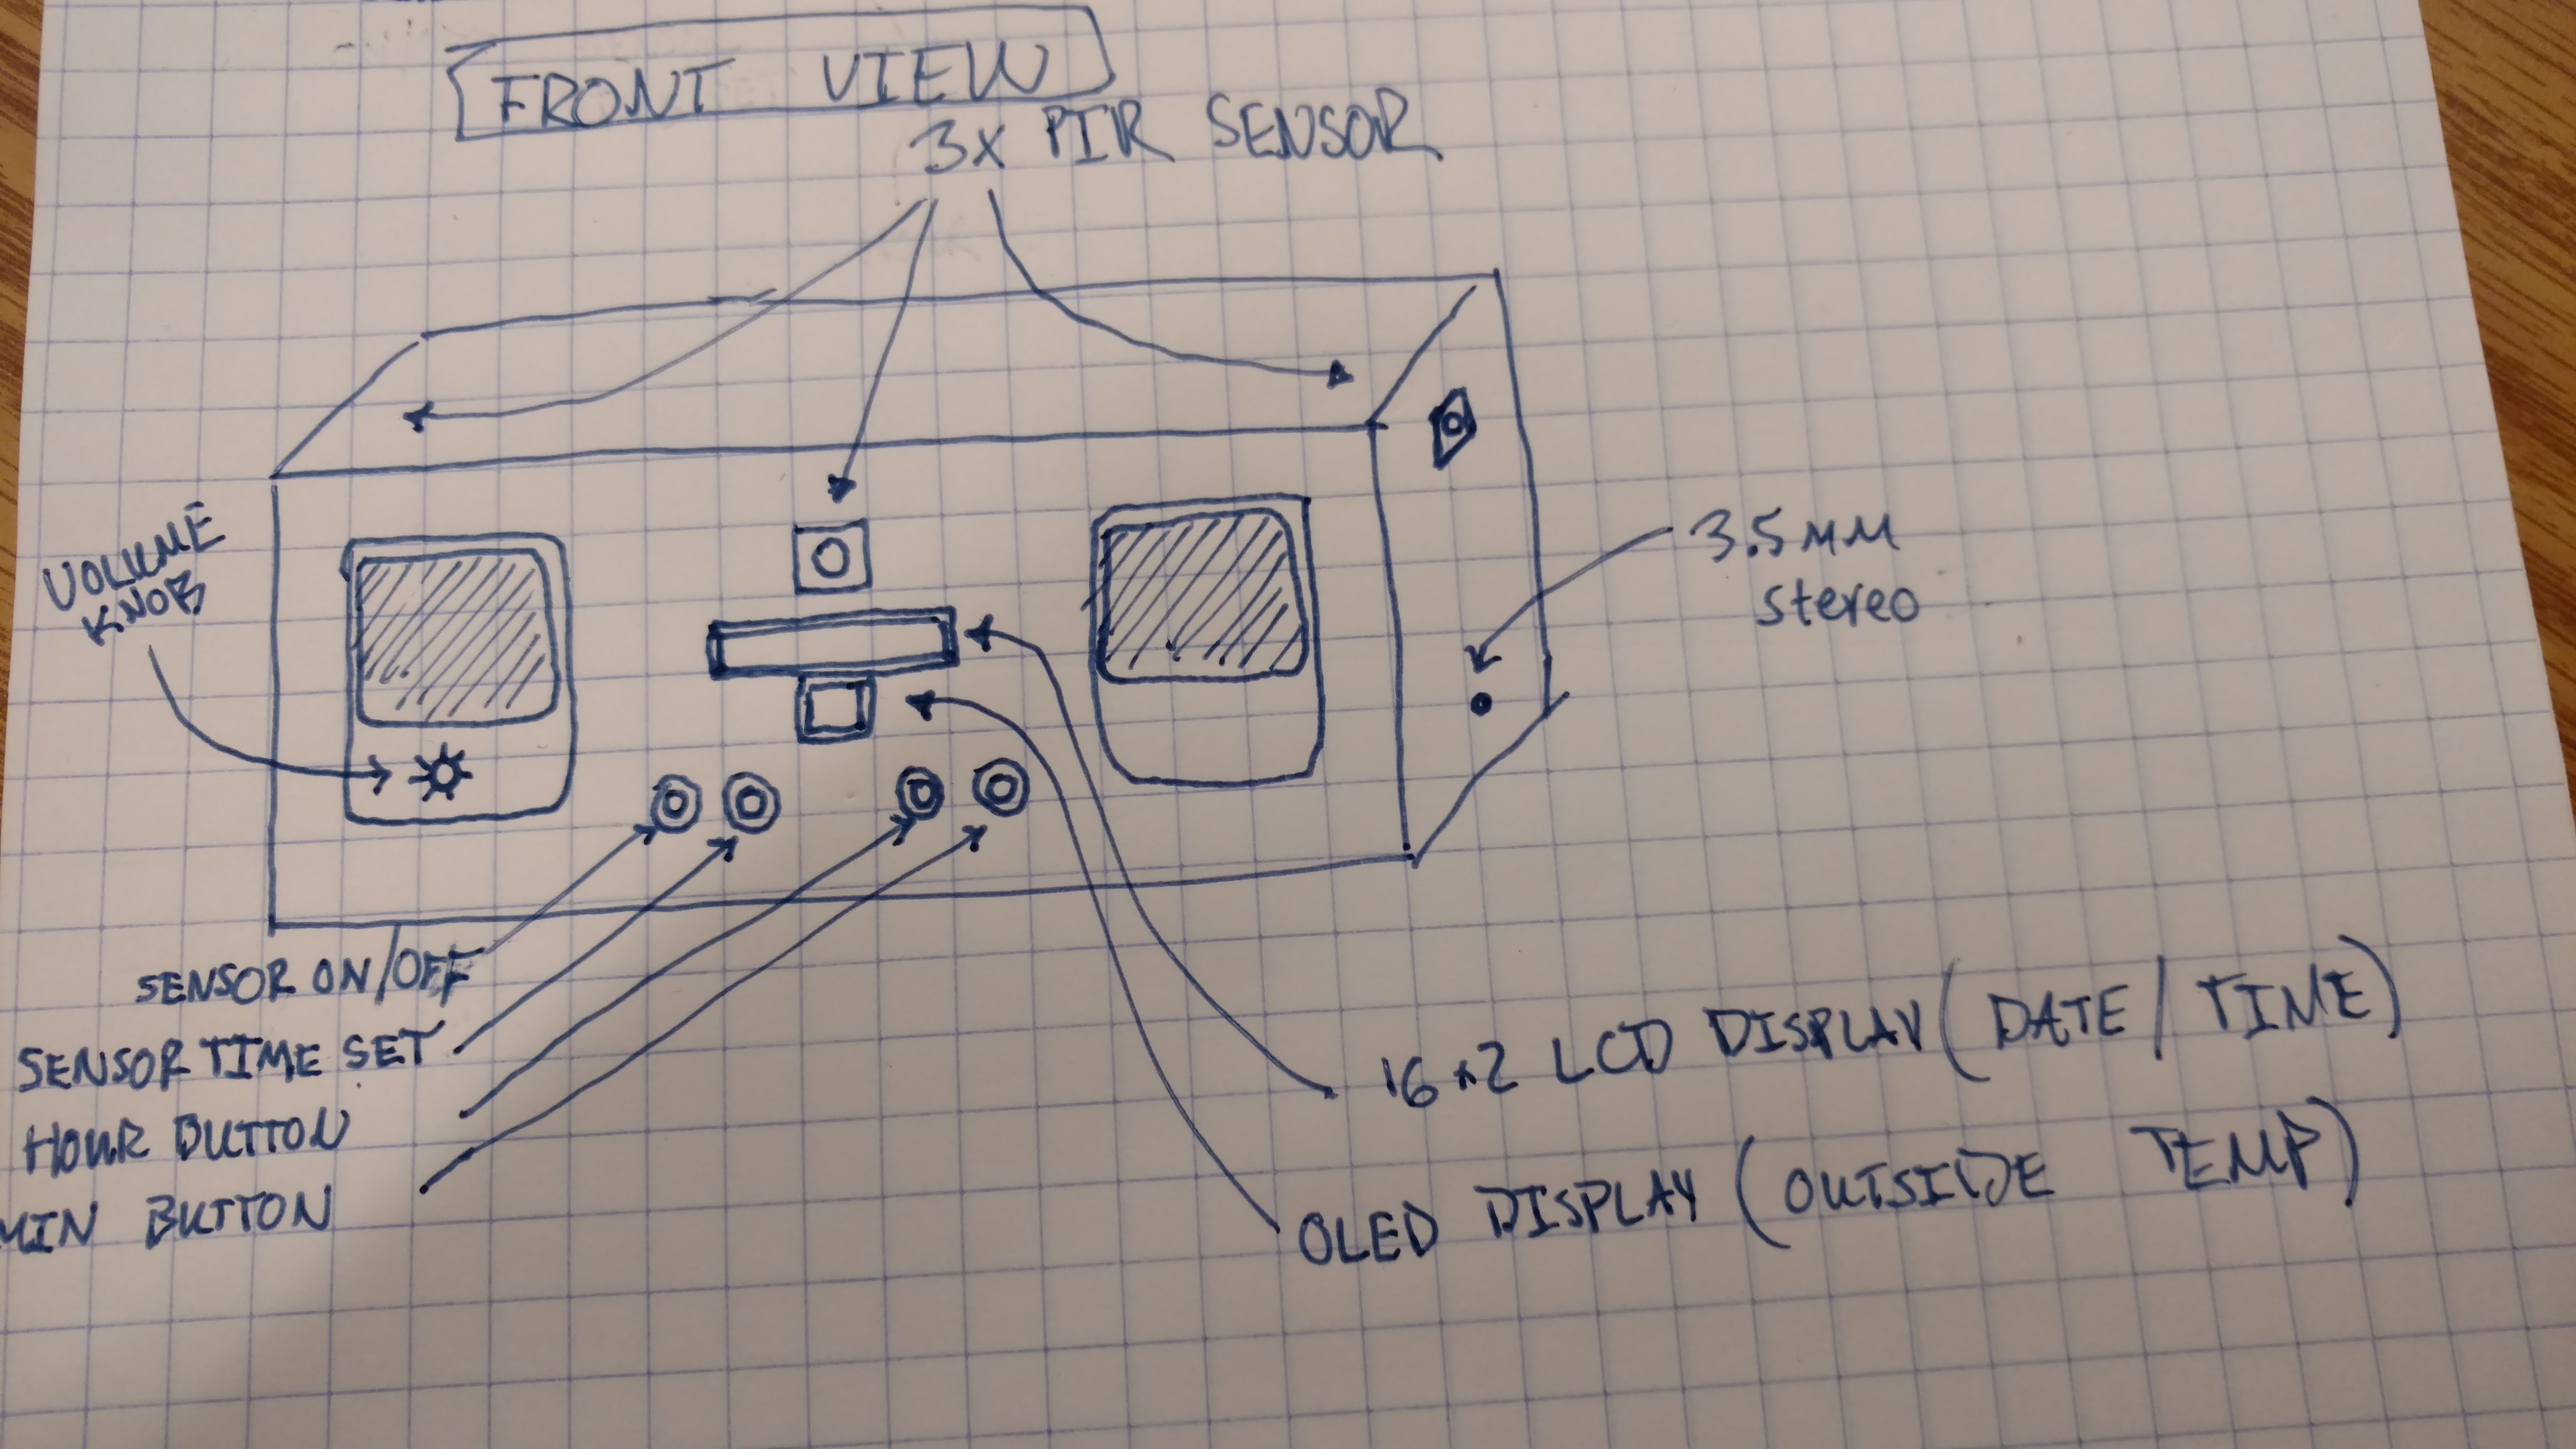 FRONT VIEW
3x PIR SENSOR
VOLUME
KNOB
3.5MM
stereo
SENSOR ON/OFF
SENSOR TIME SET
HOUR BUTTON
MIN BUTTON
16x2 LCD DISPLAY (DATE/TIME)
OLED DISPLAY (OUTSIDE TEMP)